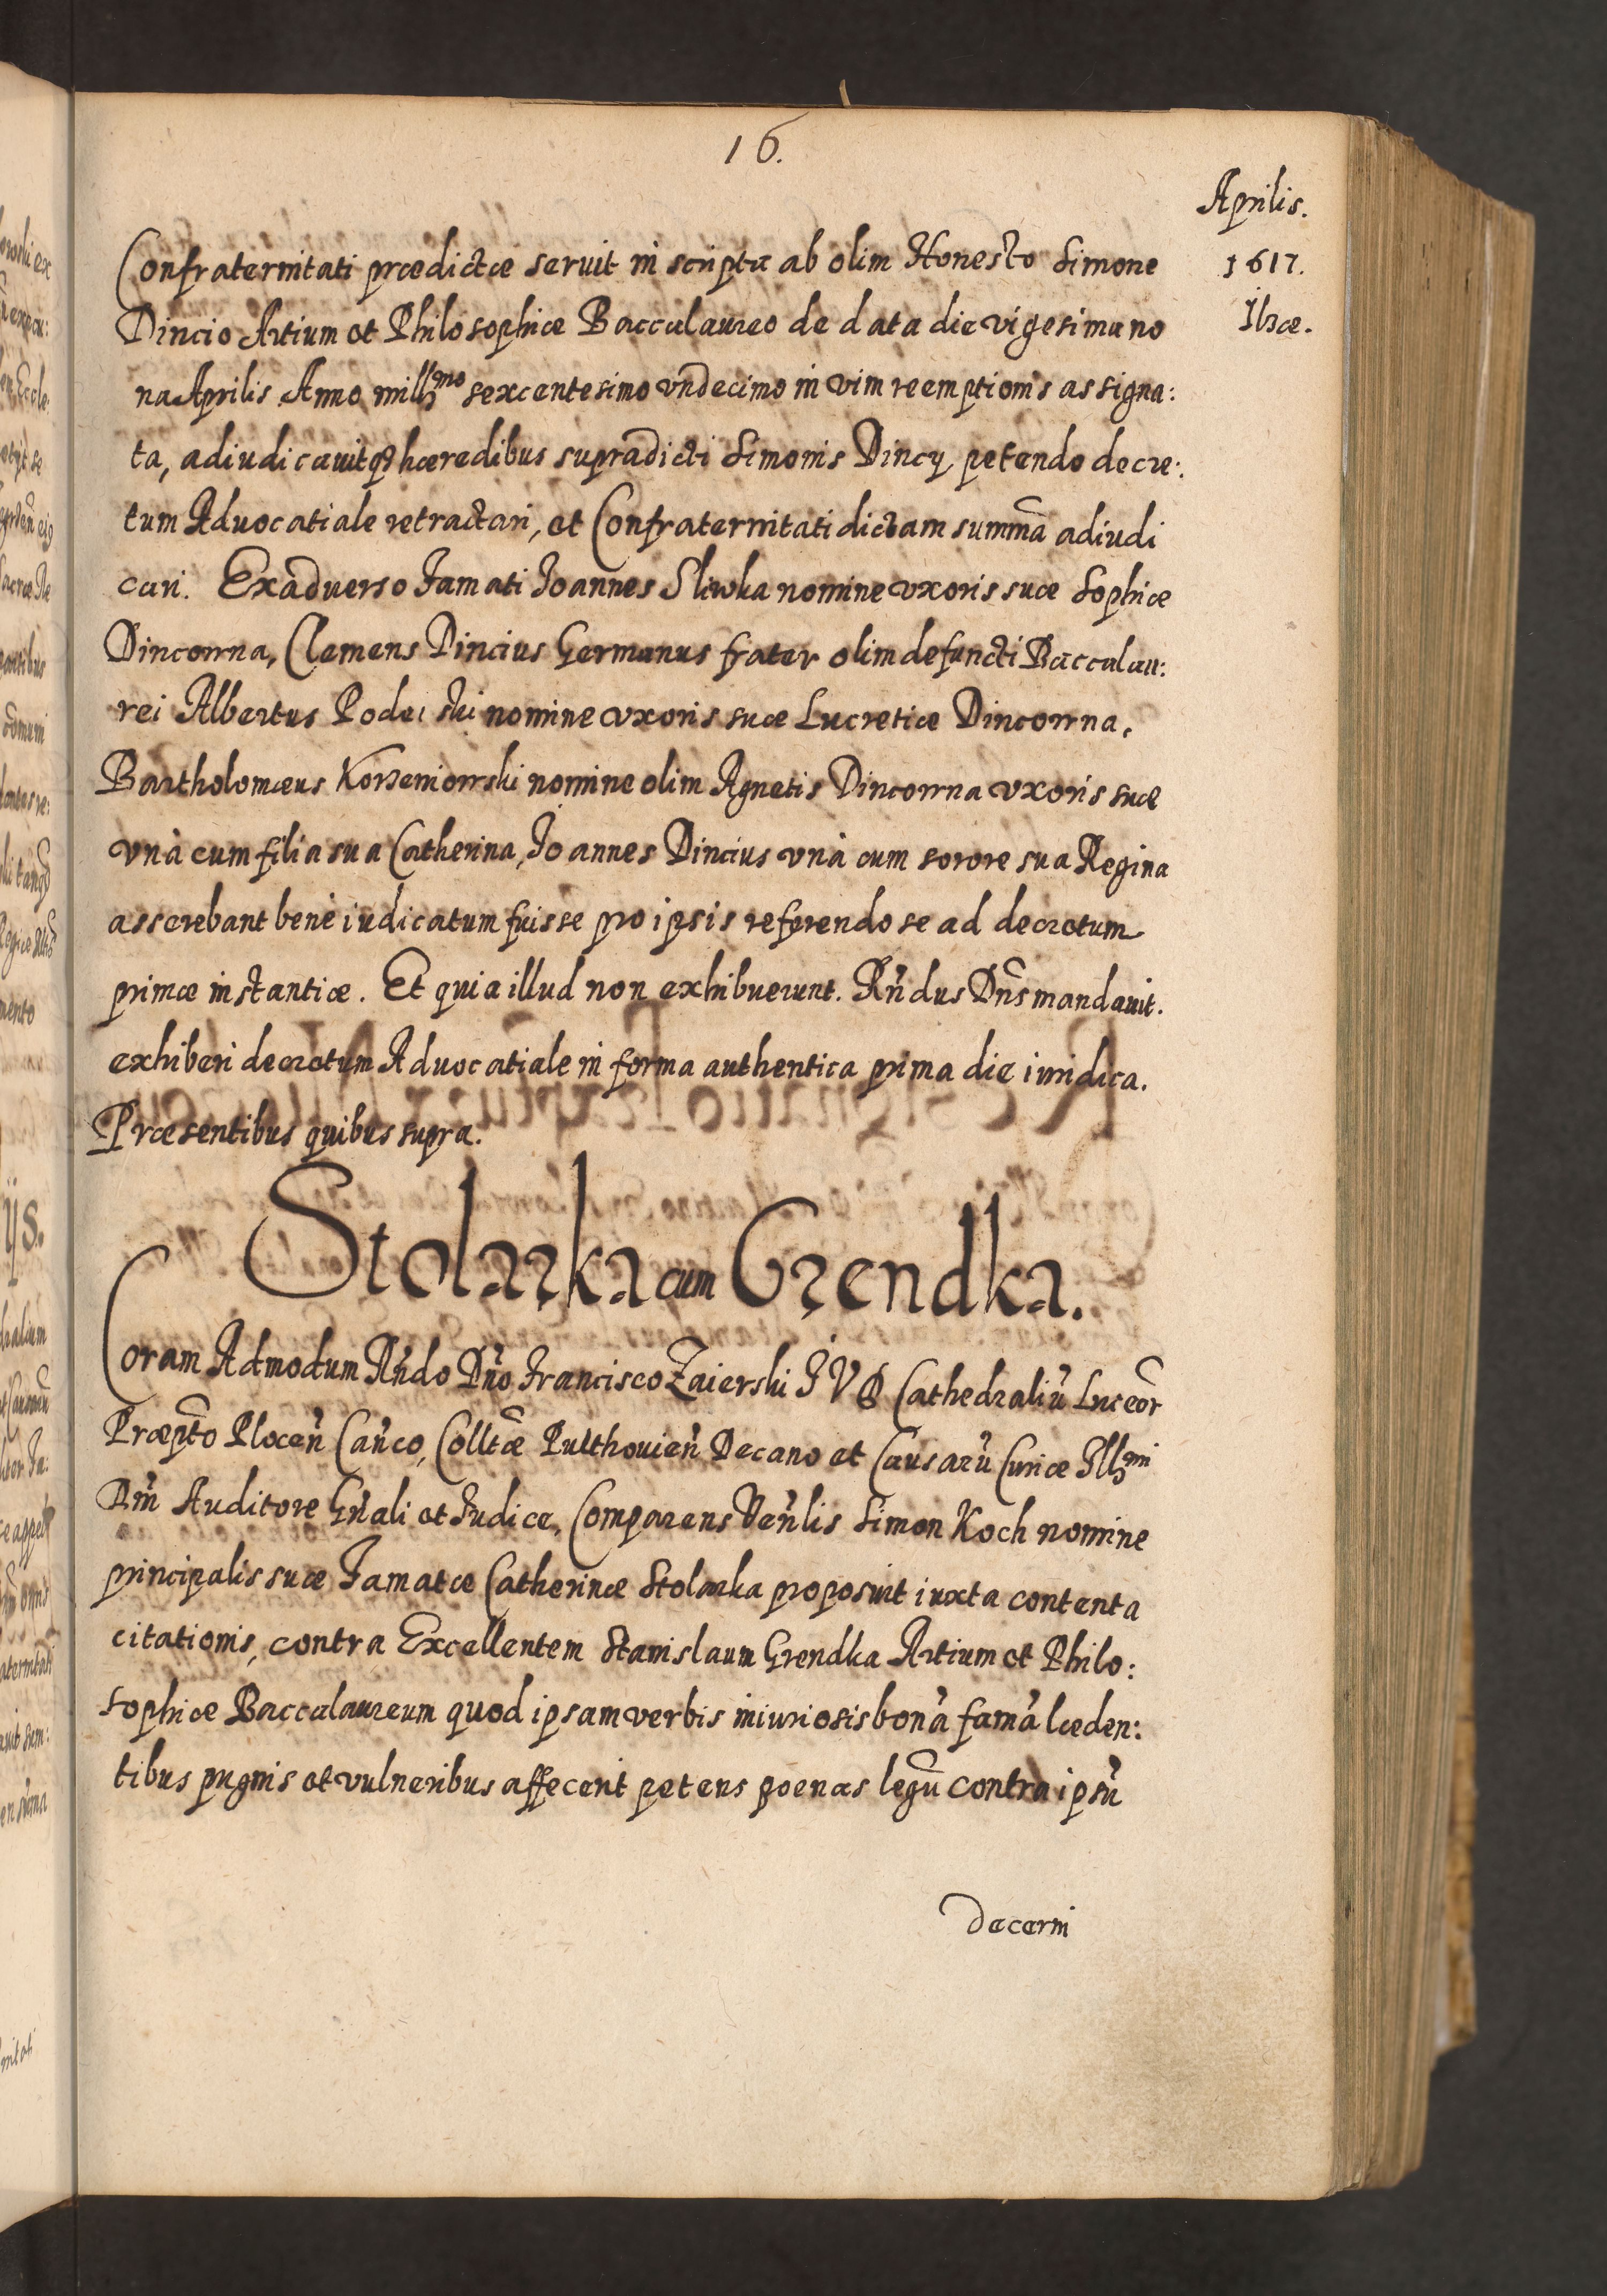 16.
Aprilis.
1617.
Confraternitati prædictæ seruit inscripta ab olim Honesto Simone
Dincio Artium et Philosophiæ Baccalaureo de data die vigesima no
na Aprilis Anno mill̃mo sexcentesimo vndecimo in vim reemptionis assigna:
ta, adiudicauitq́ hæredibus supradicti Simonis Dincÿ petendo decre:
tum Aduocatiale retractari, et Confraternitati dictam summã adiudi
cari. Exaduerso Famati Joannes Sliwka nomine vxoris suæ Sophiæ
Dincowna, Clemens Dincius Germanus frater olim defuncti Baccalau:
rei Albertus nomine vxoris suæ Lucretiæ Dincowna,
Bartholomæus Korzeniowski nomine olim Agnetis Dincowna vxoris suæ
vnà cum filia sua Catherina, Joannes Dincius vnà cum sorore sua Regina
asserebant benè iudicatum fuisse pro ipsis referendo se ad decretum
primæ instantiæ. Et quia illud non exhibuerunt. Rñdus Dñs mandauit.
exhiberi decretum Aduocatiale in forma authentica prima die iuridica.
Præsentibus quibus supra.
Stolarka cum Grendka.
Coram Admodum Rñdo Dño Francisco Zaierski J V D Cathedraliũ Luceoř
Præpto Plocen̄ Can̄co, Colltæ Pulthouien̄ Decano et Causarũ Curiæ Illmi
Dñi Auditore Gñali et Judice, Comparens Ven̄lis Simon Koch nomine
principalis suæ Famatæ Catherinæ Stolarka proposuit iuxta contenta
citationis, contra Excellentem Stanislaum Grendka Artium et Philo:
sophiæ Baccalaureum quod ipsam verbis iniuriosis bonã famã læden:
tibus pugnis et vulneribus affecerit petens poenas legũ contra ipsũ
decerni